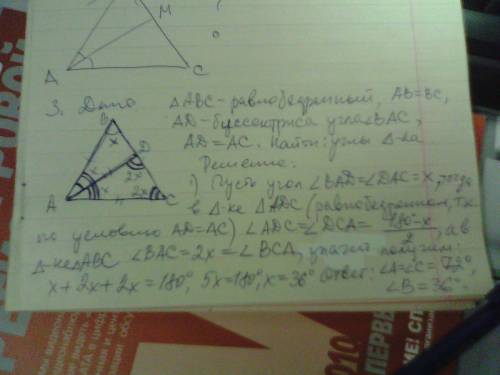 M
A
C
3. Дано
△ABC - равнобедренный, AB=BC,
AD - биссектриса угла ∠BAC,
AD=AC. Найти: углы △-ка.
Решение:
B
x
D
2x
x
x
2x
A
C
1) Пусть угол ∠BAD=∠DAC=x, тогда
в △-ке △ADC (равнобедренном, т.к
по условию AD=AC) ∠ADC=∠DCA= 180°-x / 2, а в
△-ке ABC ∠BAC=2x=∠BCA, значит получим:
x+2x+2x=180°, 5x=180°, x=36° Ответ: ∠A=∠C=72°,
∠B=36°.
2010
ПЕРВЫЕ